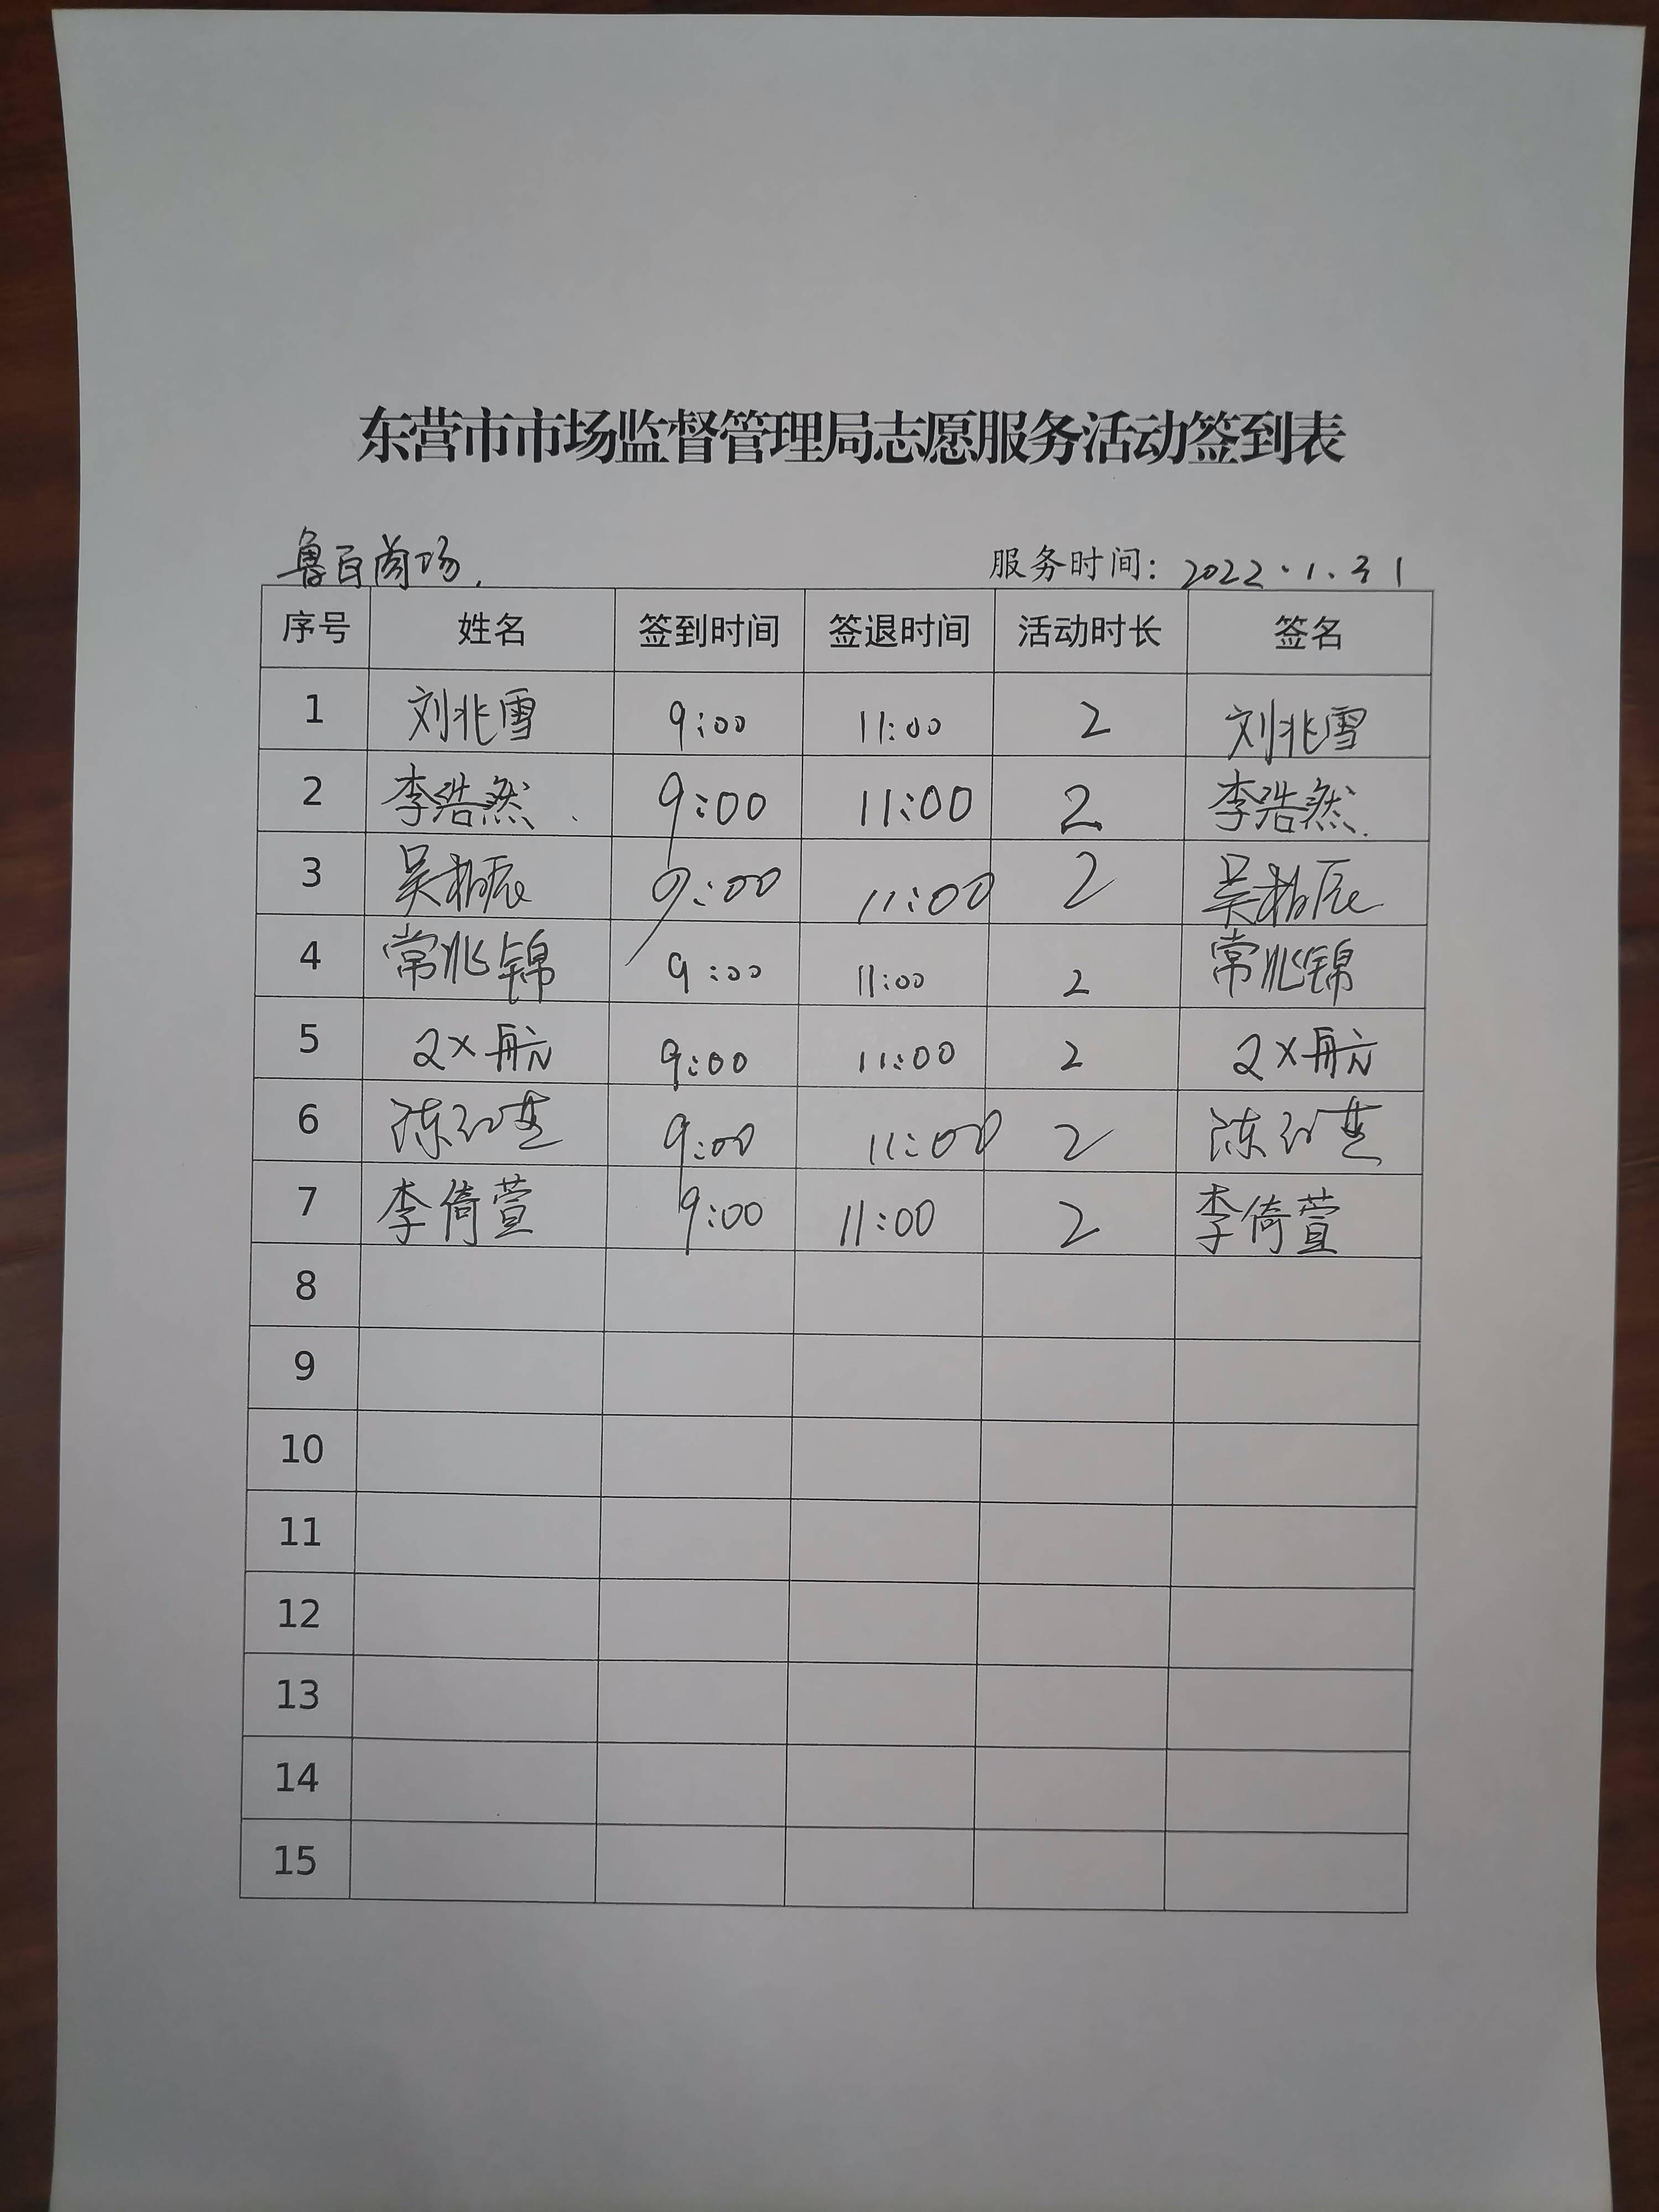 东营市市场监督管理局志愿服务活动签到表
鲁百商场.
服务时间: 2022.1.31
序号 姓名 签到时间 签退时间 活动时长 签名
1 刘兆雪 9:00 11:00 2 刘兆雪
2 李浩然 9:00 11:00 2 李浩然
3 吴柏辰 9:00 11:00 2 吴柏辰
4 常兆锦 9:00 11:00 2 常兆锦
5 航 9:00 11:00 2 航
6 陈 9:00 11:00 2 陈
7 李倚萱 9:00 11:00 2 李倚萱
8
9
10
11
12
13
14
15